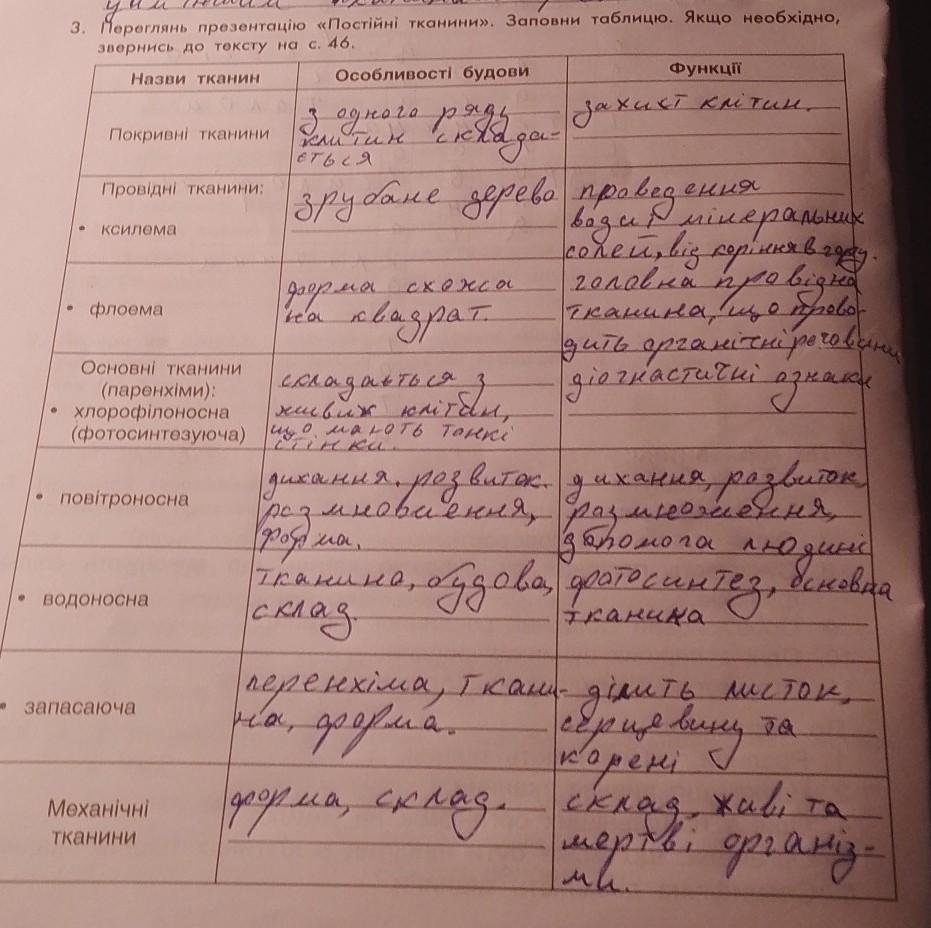 3. Переглянь презентацію «Постійні тканини». Заповни таблицю. Якщо необхідно,
звернись до тексту на с. 46.
Назви тканин
Особливості будови
Функції
Покривні тканини
з одного ряду
клитин склада-
ється
захист клітин.
Провідні тканини:
• ксилема
зрубане дерево
проведення
води і мінеральних
солей, від коріння вгору.
• флоема
форма схожа
на квадрат.
головна провідна
тканина, що прово-
дить органічні речовини
Основні тканини
(паренхіми):
• хлорофілоносна
(фотосинтезуюча)
складається з
живих клітин,
що мають тонкі
стінки.
діогнастичні ознаки
• повітроносна
дихання, розвиток.
розмноження,
форма.
дихання, розвиток,
размноження,
допомога людині
• водоносна
тканина, будова,
склад.
фотосинтез, основна
тканина
• запасаюча
перенхіма, ткани-
на, форма.
ділить листок,
серцевину та
корені
Механічні
тканини
форма, склад.
склад, живі та
мертві організ-
ми.